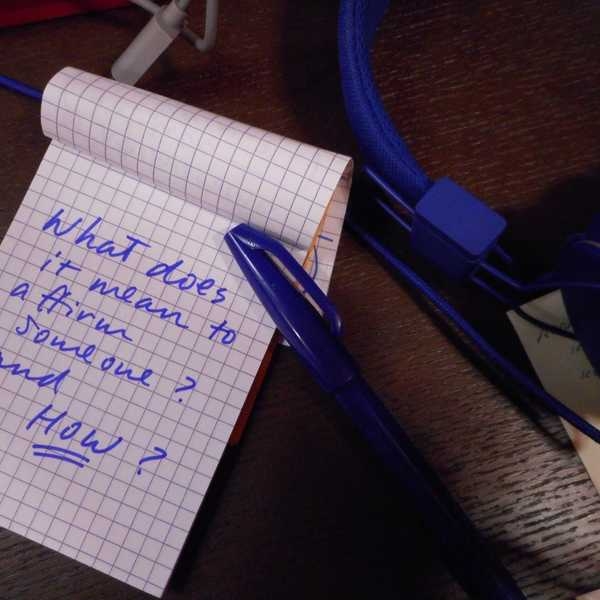 What does
it mean to
affirm
someone?
and
How?